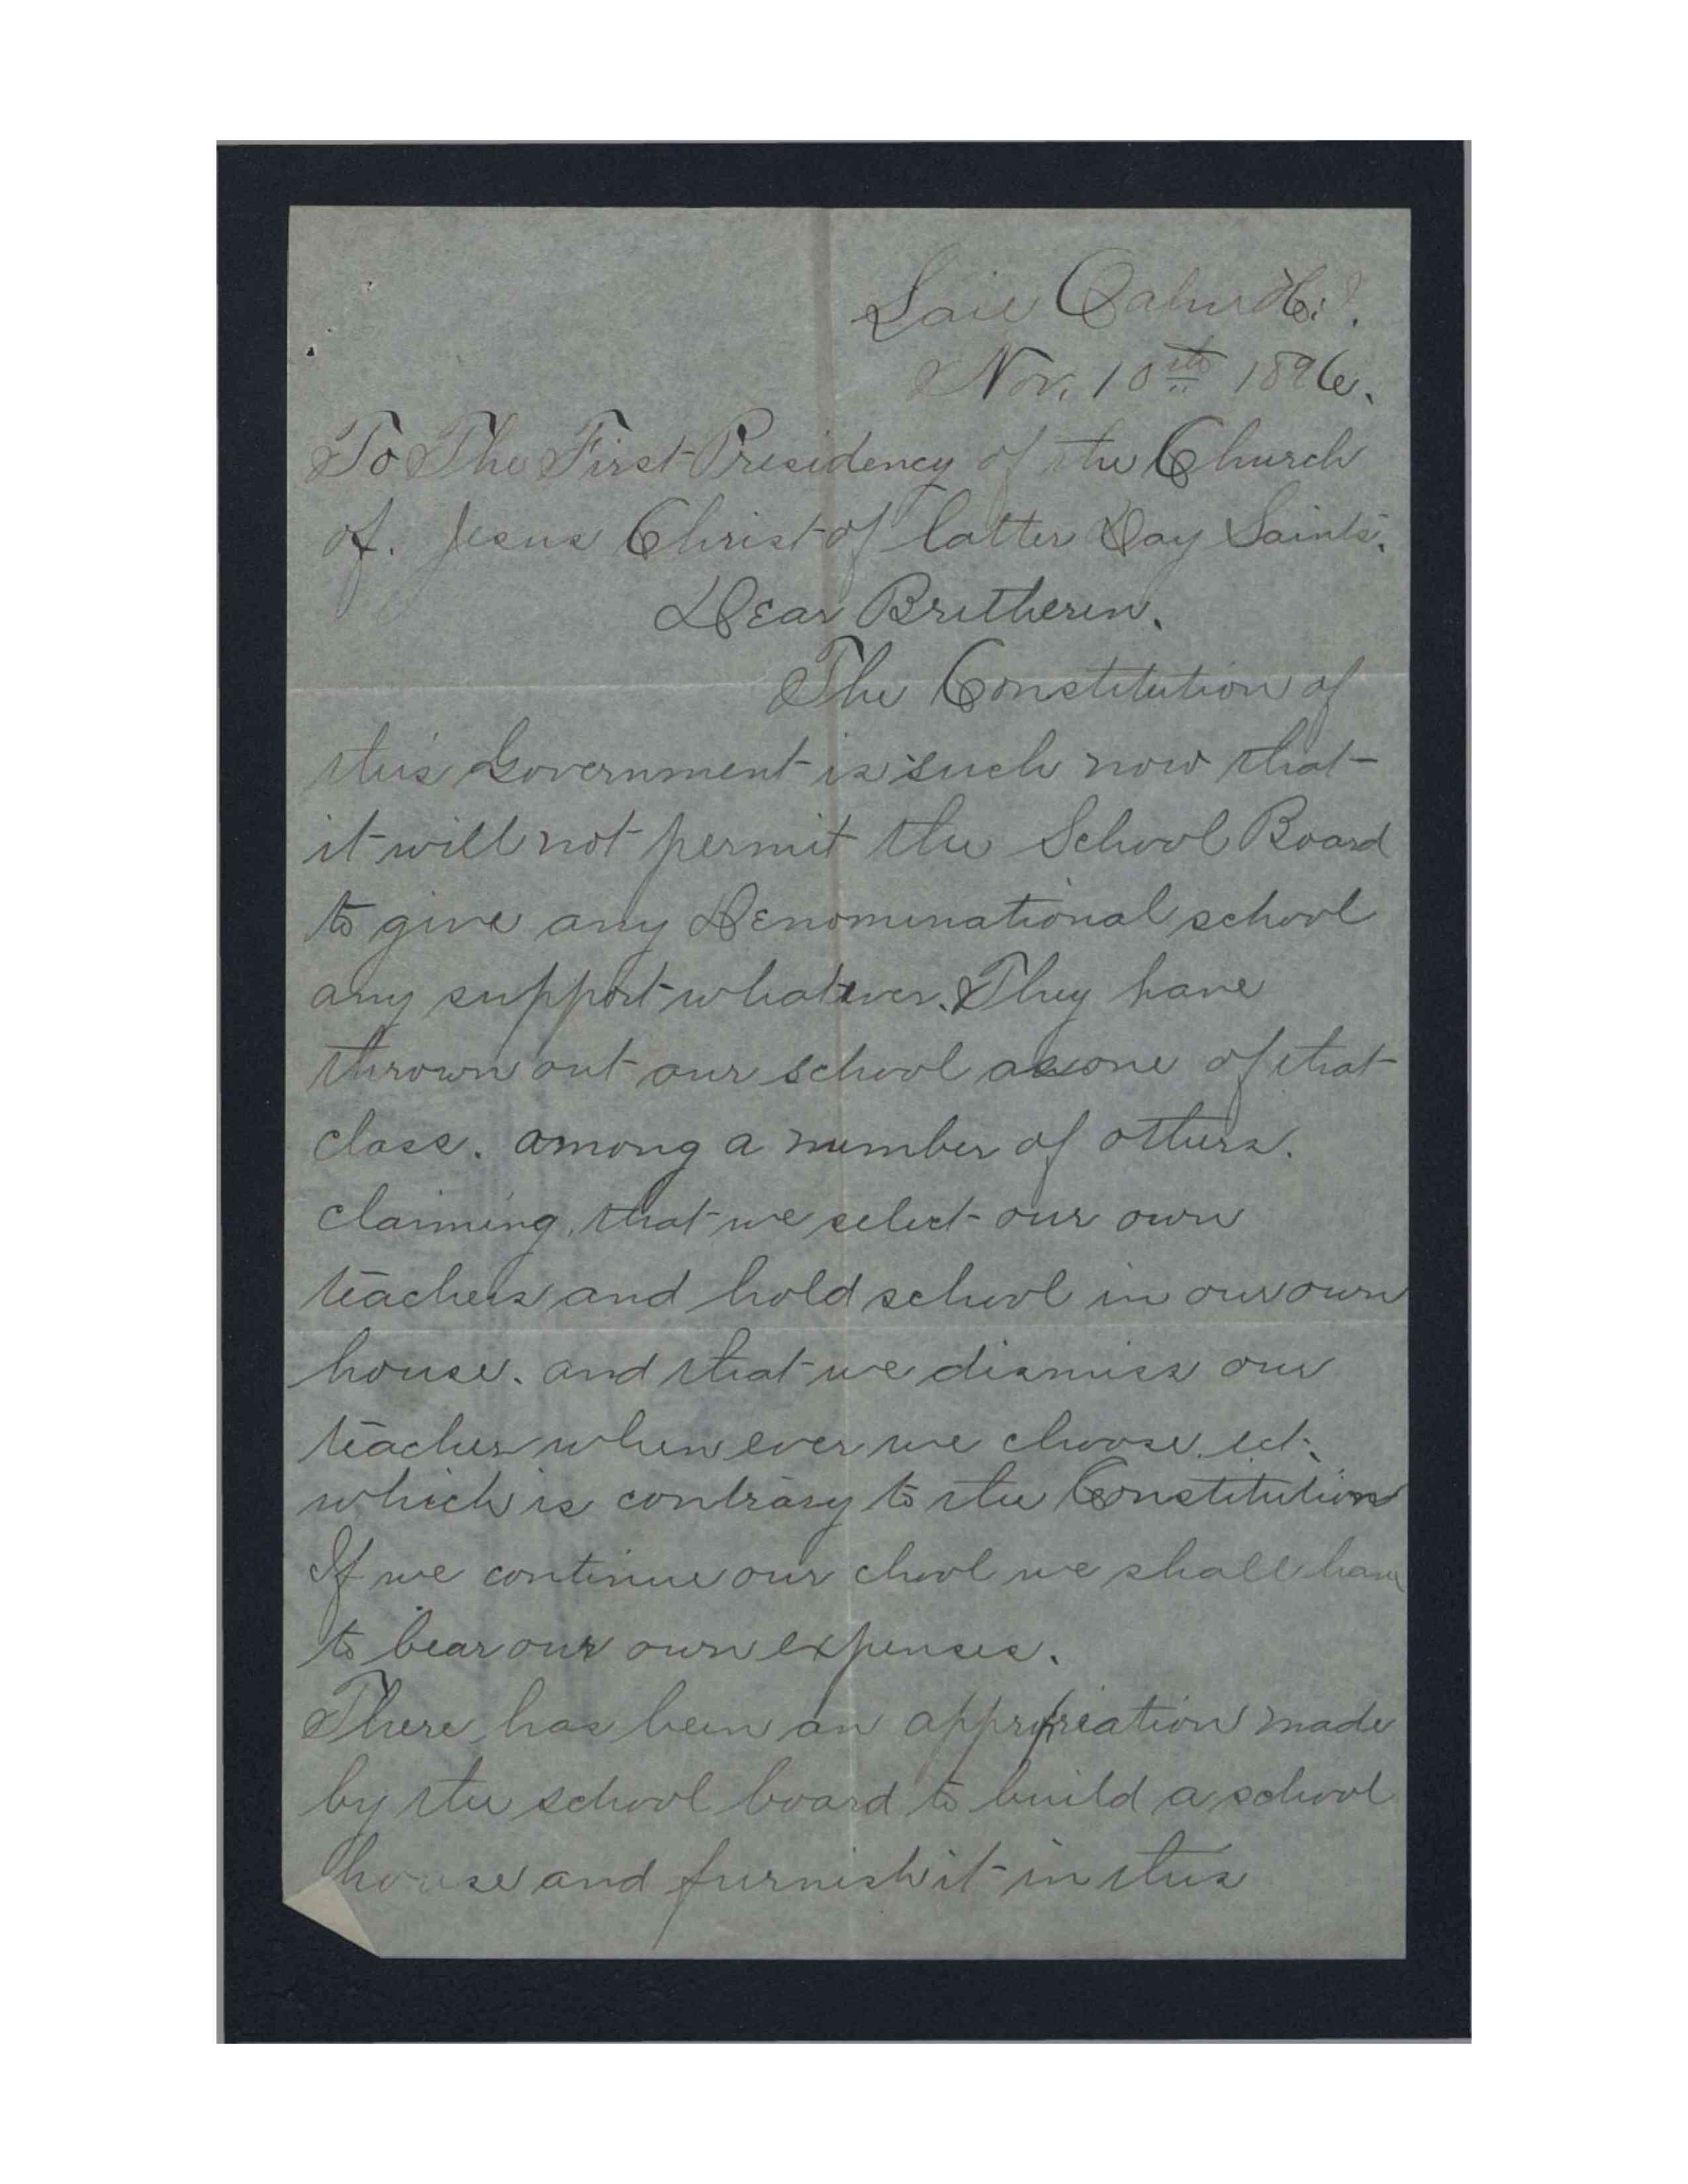 Laie Oahu H. I.
Nov. 10th 1896.
To The First Presidency of the Church
of. Jesus Christ of latter Day Saints.
Dear Bretheren.
The Constitution of
this Government is such now that
it will not permit the School Board
to give any Denominational school
any support whatever. They have
thrown out our school as one of that
class. among a number of others.
claiming, that we select our own
teachers and hold school in our own
house. and that we dismiss our
teacher when ever we choose. ect.
which is contrary to the Constitution
If we continue our chool we shall have
to bear our own expenses.
There has been an appropreation made
by the school board to build a school
house and furnish it in this